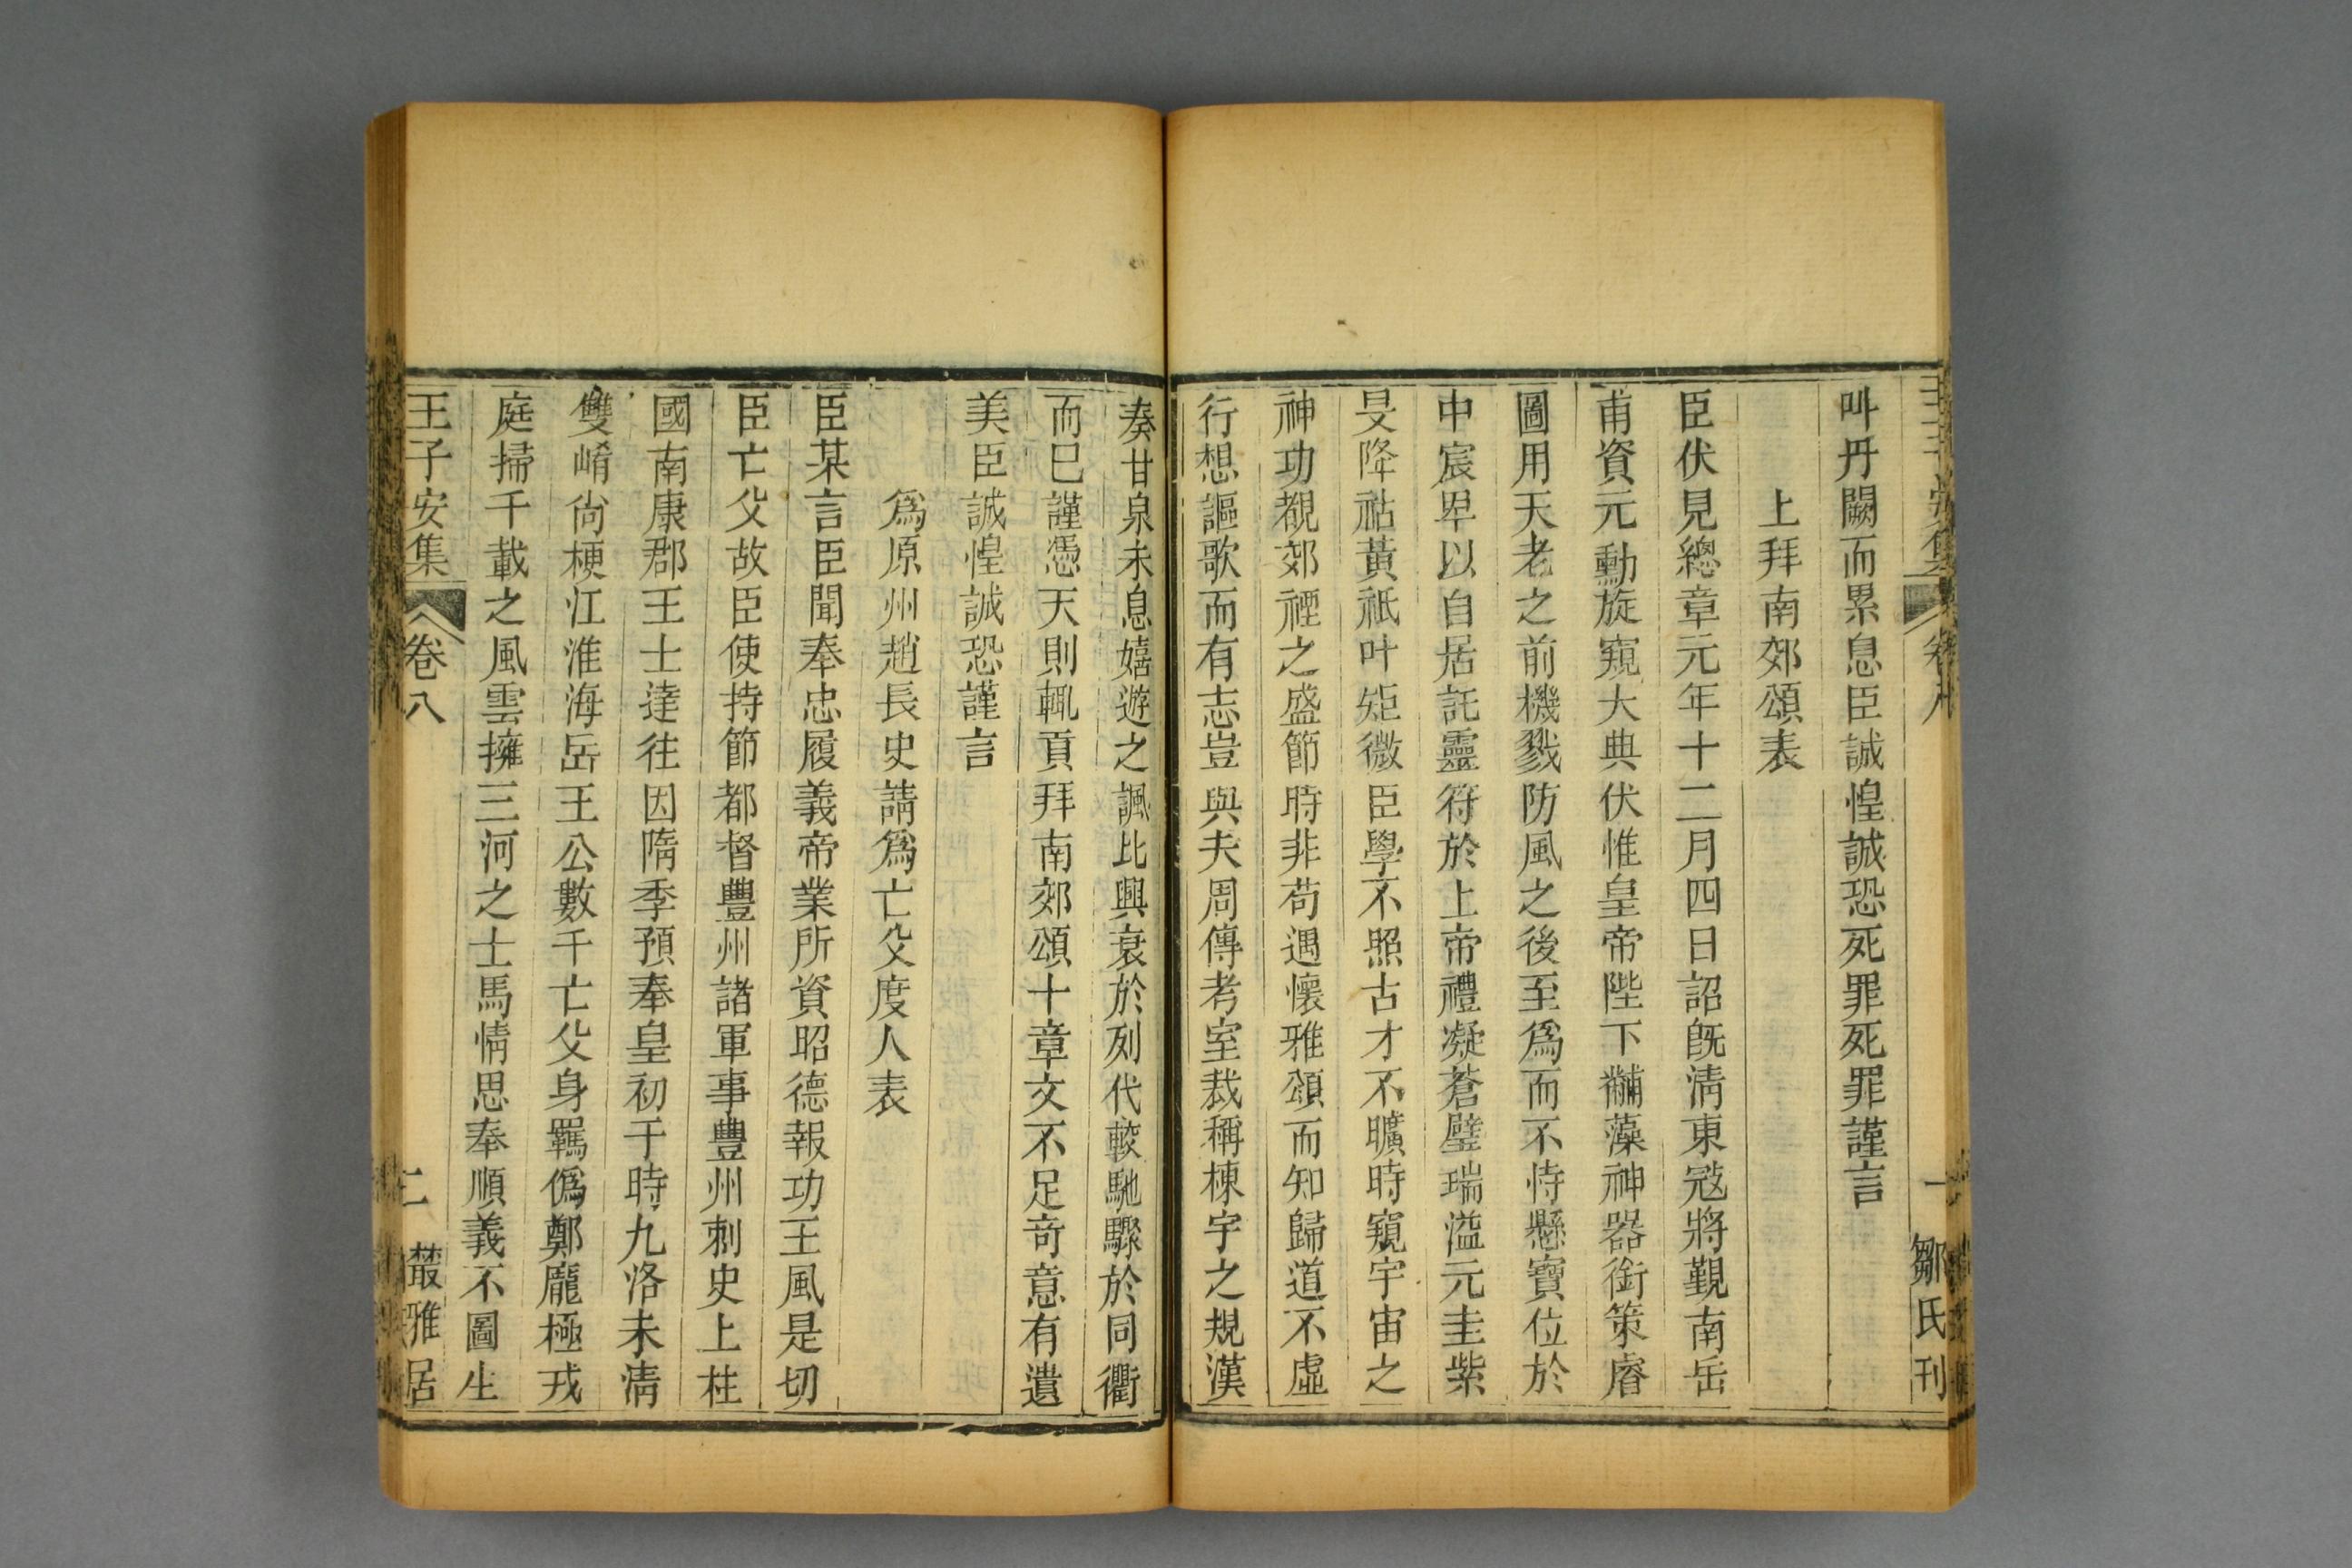 王子安集 卷八 一 鄒氏刊
叫丹闕而累息臣誠惶誠恐死罪死罪謹言
上拜南郊頌表
臣伏見總章元年十二月四日詔旣淸東冦將覲南岳
甫資元勳旋窺大典伏惟皇帝陛下黼藻神器銜策睿
圖用天老之前機戮防風之後至爲而不恃懸寶位於
中宸卑以自居託靈符於上帝禮凝蒼璧瑞溢元圭紫
旻降祜黃祇叶矩微臣學不照古才不曠時窺宇宙之
神功覩郊禋之盛節時非苟遇懷雅頌而知歸道不虛
行想謳歌而有志豈與夫周傳考室裁稱棟宇之規漢
奏甘泉未息嬉遊之諷比興衰於列代較馳驟於同衢
而已謹憑天則輒貢拜南郊頌十章文不足竒意有遺
美臣誠惶誠恐謹言
爲原州趙長史請爲亡父度人表
臣某言臣聞奉忠履義帝業所資昭德報功王風是切
臣亡父故臣使持節都督豐州諸軍事豐州刺史上柱
國南康郡王士達往因隋季預奉皇初于時九洛未淸
雙崤尙梗江淮海岳王公數千亡父身羈僞鄭龐極戎
庭掃千載之風雲擁三河之士馬情思奉順義不圖生
王子安集 卷八 二 叢雅居